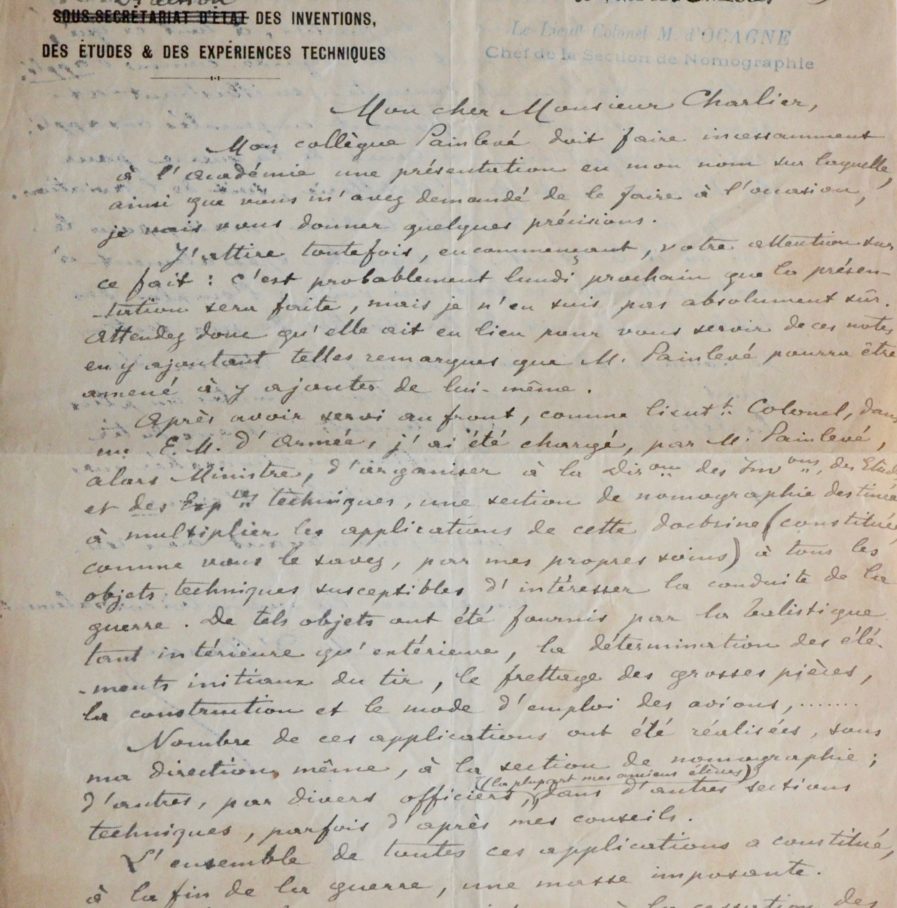 Direction
SOUS-SECRÉTARIAT D'ÉTAT DES INVENTIONS,
DES ÉTUDES & DES EXPÉRIENCES TECHNIQUES
Le Lieut^t Colonel M. d'OCAGNE
Chef de la Section de Nomographie
Mon cher Monsieur Charlier,
Mon collègue Painlevé doit faire incessamment
à l'académie une présentation en mon nom sur laquelle,
ainsi que vous m'avez demandé de le faire à l'occasion,
je vais vous donner quelques précisions.
J'attire toutefois, en commençant, votre attention sur
ce fait : c'est probablement lundi prochain que la présen-
-tation sera faite, mais je n'en suis pas absolument sûr.
Attendez donc qu'elle ait eu lieu pour vous servir de ces notes
en y ajoutant telles remarques que M. Painlevé pourra être
amené à y ajouter de lui-même.
Après avoir servi au front, comme lieut^t Colonel, dans
un E.M. d'Armée, j'ai été chargé, par M. Painlevé,
alors Ministre, d'organiser à la Dir^on des Inv^ons, des Etud
et des Exp^ces techniques, une section de nomographie destinée
à multiplier les applications de cette doctrine (constituée,
comme vous le savez, par mes propres soins) à tous les
objets techniques susceptibles d'intéresser la conduite de la
guerre. De tels objets ont été fournis par la balistique
tant intérieure qu'extérieure, la détermination des élé-
-ments initiaux du tir, le frettage des grosses pièces,
la construction et le mode d'emploi des avions,.......
Nombre de ces applications ont été réalisées, sous
ma direction même, à la section de nomographie ;
d'autres, par divers officiers, (la plupart mes anciens élèves) dans d'autres sections
techniques, parfois d'après mes conseils.
L'ensemble de toutes ces applications a constitué,
à la fin de la guerre, une masse imposante.
à la cessation des